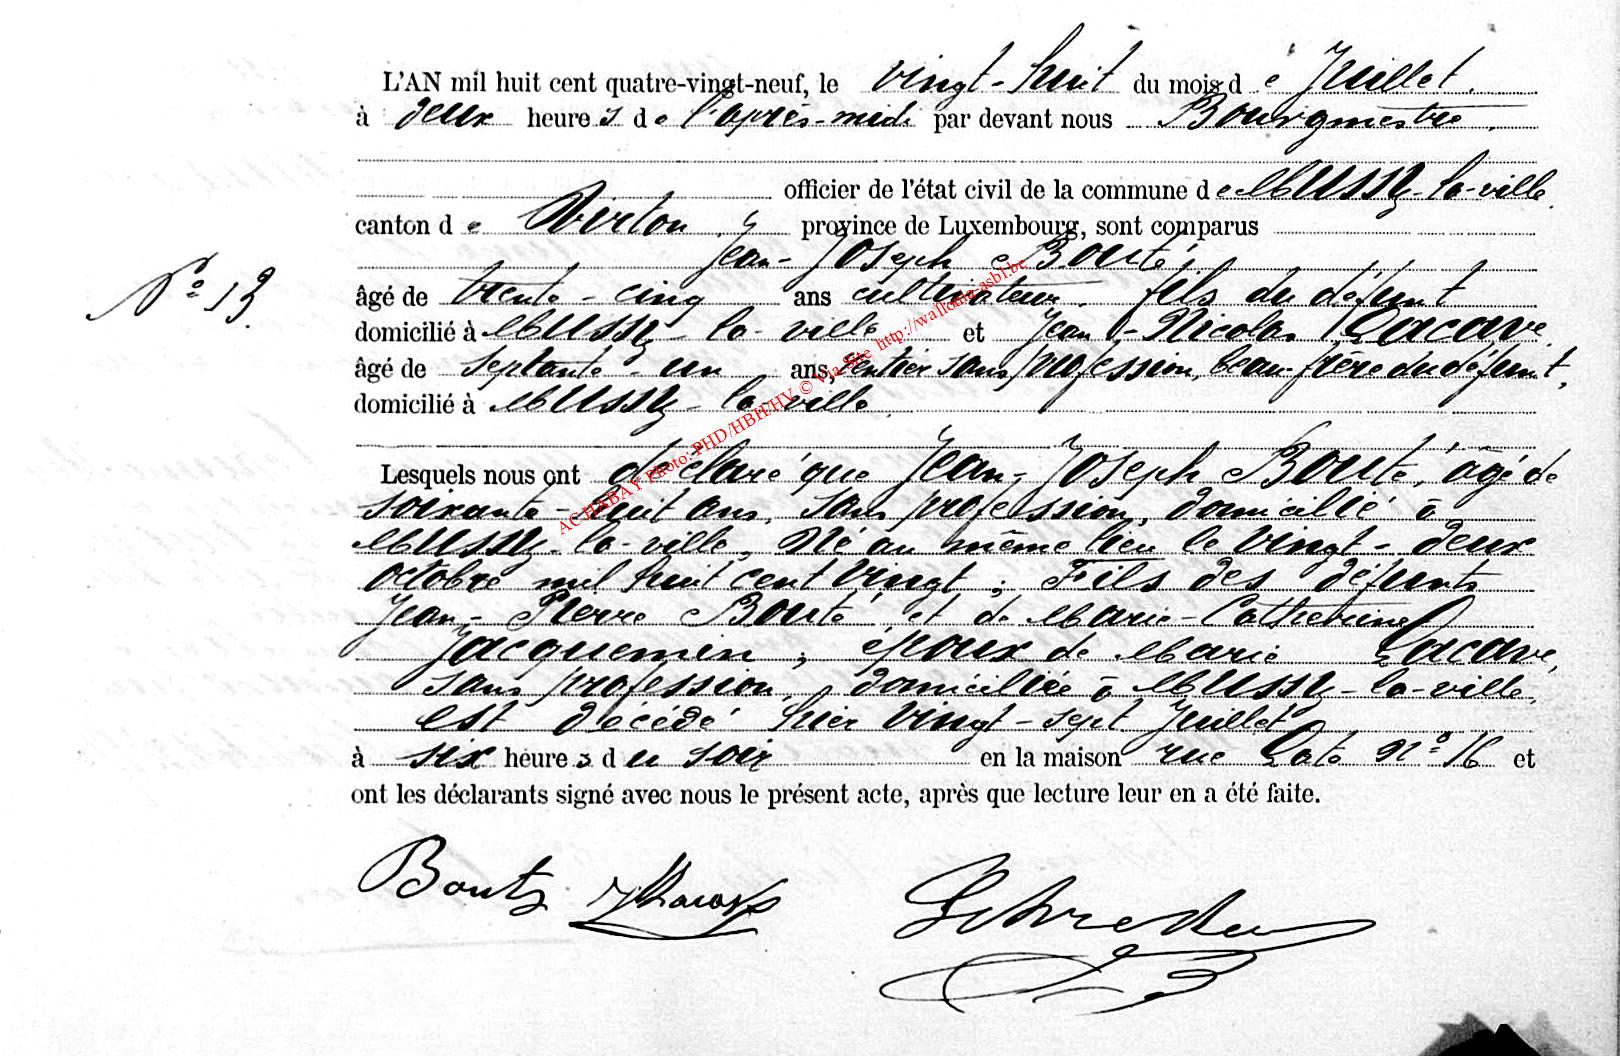 L'AN mil huit cent quatre-vingt-neuf, le vingt-huit du mois de Juillet.
à deux heures de l'après-midi par devant nous Bourgmestre.
officier de l'état civil de la commune de Mussy-la-ville.
canton de Virton. province de Luxembourg, sont comparus
Jean-Joseph Bouté,
N° 13.
âgé de trente-cinq ans cultivateur. fils du défunt
domicilié à Mussy-la-ville et Jean-Nicolas Lacave.
âgé de septante-un ans, rentier sans profession, beau-frère du défunt,
domicilié à Mussy-la-ville.
AC HABAY Photo: PHD/HBH/HV © Via Site http://wallonia-asbl.be
Lesquels nous ont déclaré que Jean-Joseph Bouté, âgé de
soixante-huit ans, sans profession, domicilié à
Mussy-la-ville, Né au même lieu le vingt-deux
octobre mil huit cent vingt; Fils des défunts
Jean-Pierre Bouté et de Marie-Catherine
Jacquemin; époux de Marie Lacave,
sans profession, domiciliée à Mussy-la-ville,
est décédé hier vingt-sept Juillet
à six heures du soir en la maison rue N° 16 et
ont les déclarants signé avec nous le présent acte, après que lecture leur en a été faite.